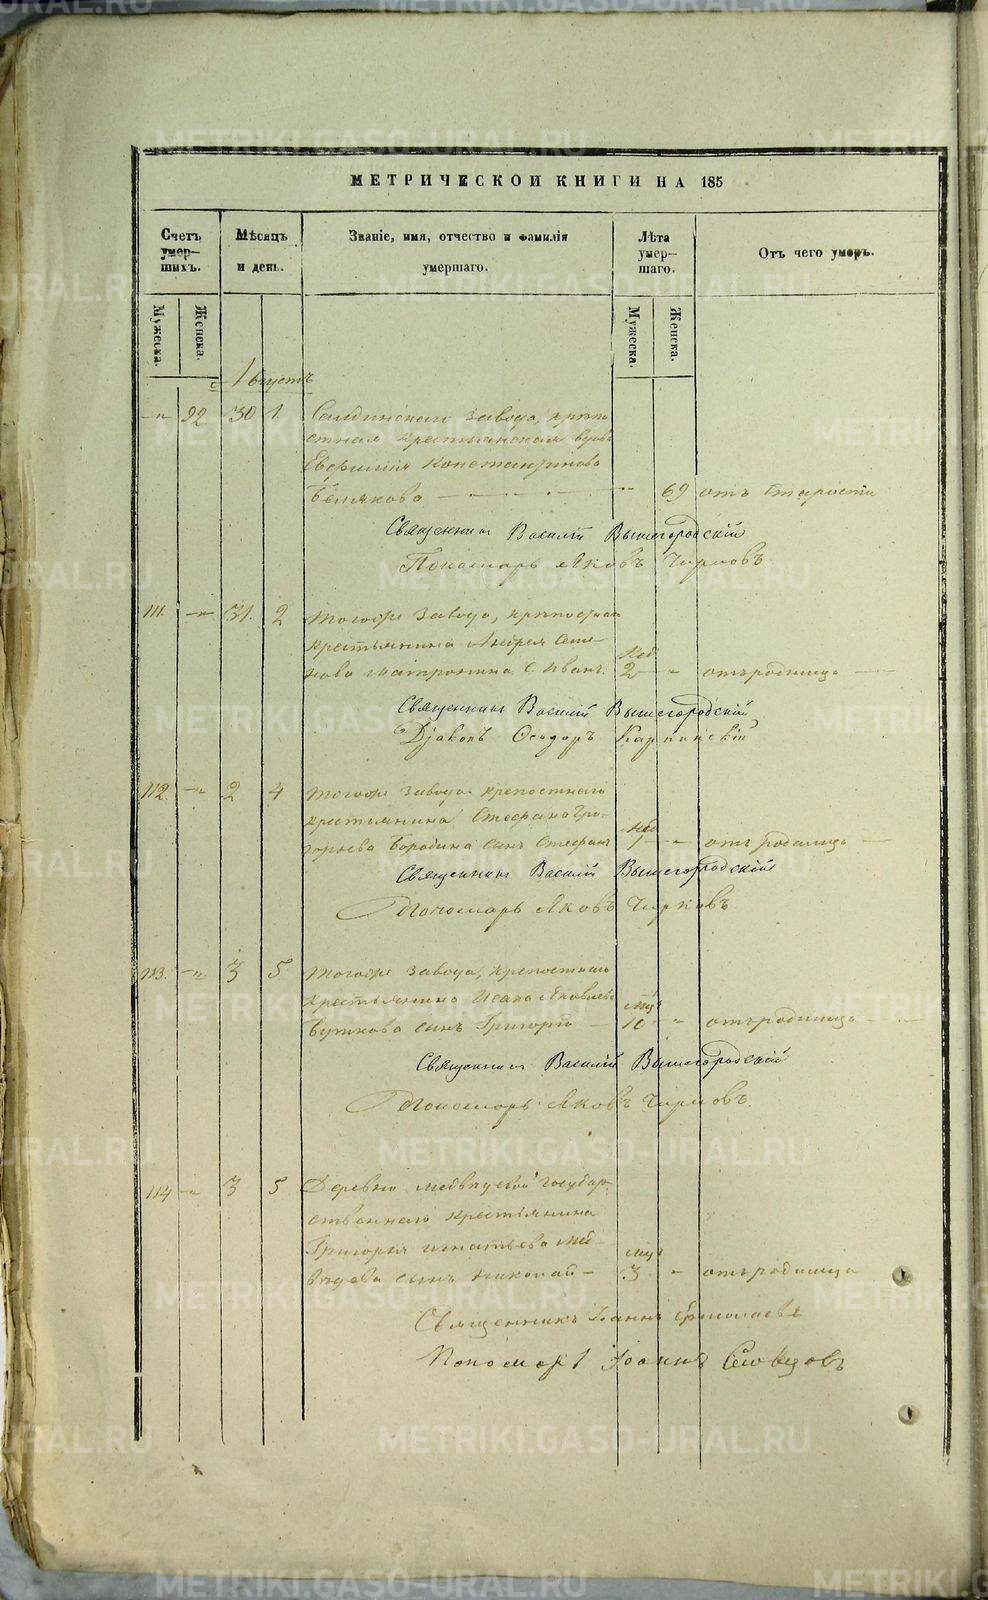 МЕТРИЧЕСКОЙ КНИГИ НА 185
Счетъ умер-
шихъ.
Мѣсяцъ
и день.
Званіе, имя, отчество и фамилія
умершаго.
Лѣта
умер-
шаго.
Отъ чего умеръ.
Мужеска.
Женска.
Мужеска.
Женска.
Августъ
-"- 92 30 1. Салдинскаго завода, крѣпо
стная крестьянская вдова
Евфимия Константинова
Белякова 69 отъ старости
Священникъ Василій Вышегородскій
Пономарь Яковъ Чирковъ
111. -"- 31. 2 Тогоже завода, крѣпостнаго
крестьянина Андрея Семе-
нова с. Иванъ. Нед
2 " отъ родимца
Священникъ Василій Вышегородскій
Діаконъ Ѳеодоръ Карпинскій
112. -"- 2 4 Тогоже завода крепостнаго
крестьянина Стефана Гри-
горьева Бородина сынъ Стефанъ Нед
1 " отъ родимца
Священникъ Василій Вышегородскій
Пономарь Яковъ Чирковъ
113. -"- 3 5 Тогоже завода, крепостнаго
крестьянина Исака Яковлева
сынъ Григорій Мѣс
10 " отъ родимца
Священникъ Василій Вышегородскій
Пономарь Яковъ Чирковъ.
114 -"- 3 5 Деревни Медвѣдевой Государ-
ственнаго крестьянина
Григорья Игнатьева Мед-
вѣдева сынъ Николай Мѣс
3 " отъ родимца
Священникъ Іоаннъ
Пономарь Іоаннъ Словцовъ
METRIKI.GASO-URAL.RU